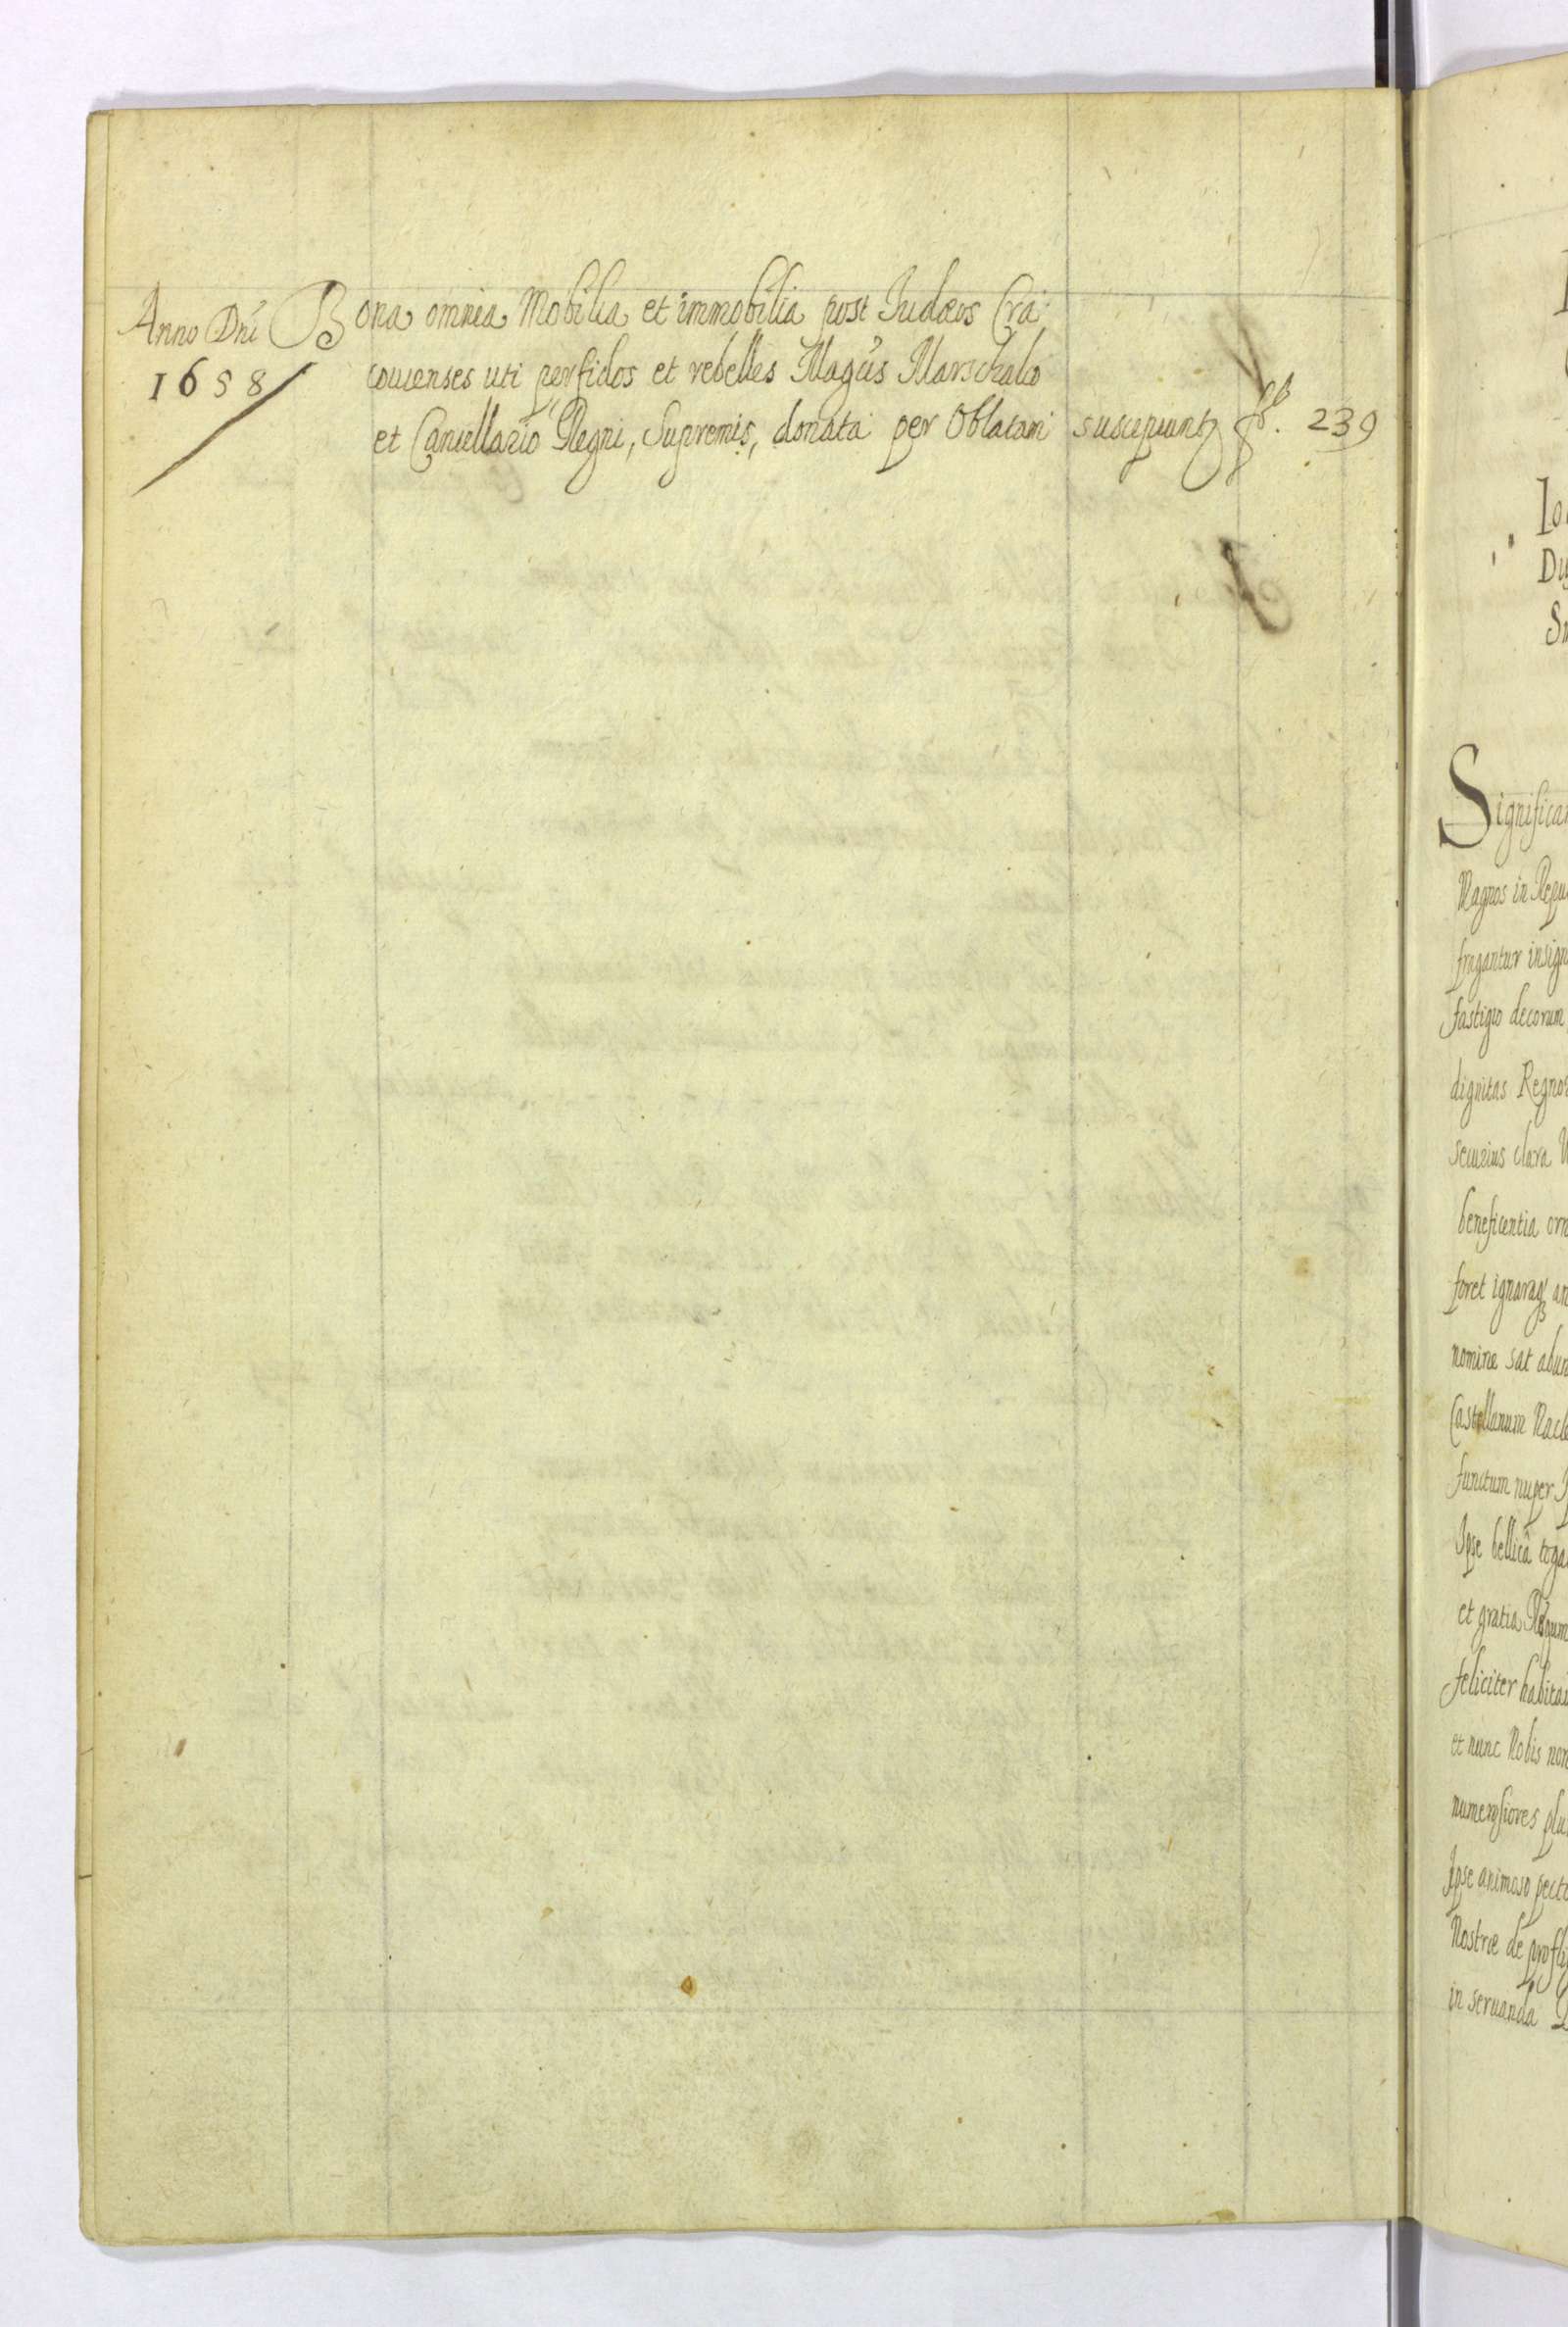 Anno Dni Bona omnia Mobilia et immobilia post Iudæos Cra:
1658 couienses uti perfidos et rebelles Magcis Marschalco
et Cancellario Regni, Supremis, donata per Oblatam suscipiunt 239
Io
Du
Significam
Magnos in Repu
fragantur insign
fastigio decorum
dignitas Regnor
securius clara
beneficentia orn
foret ignaraq an
nomine sat abun
Castellanum Nacle
functum nuper
Ipse bellica toga
et gratia Regum
feliciter habita
et nunc Nobis non
numerosiores plu
Ipse animoso pecto
Nostræ de profli
in seruanda